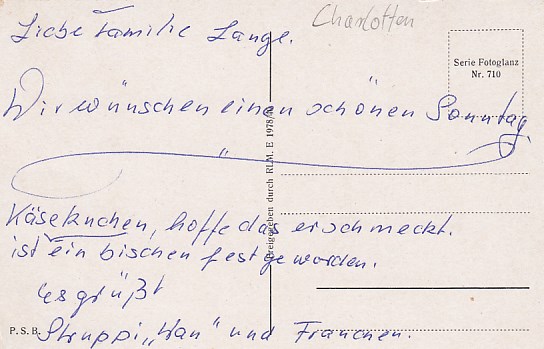 Charlotten
Liebe Familie Lange.
Serie Fotoglanz
Nr. 710
Wir wünschen einen schönen Sonntag
Käsekuchen, hoffe das er schmeckt.
ist ein bischen fest geworden.
es grüßt
Struppi „Han" und Franchen.
P. S. B.
Freigegeben durch RLM. E 1978/